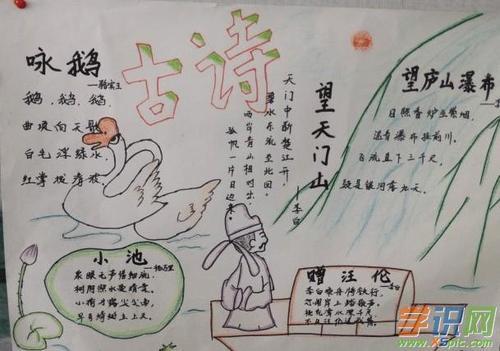 古诗
咏鹅
—骆宾王
鹅,鹅,鹅,
曲项向天歌
白毛浮绿水,
红掌拨清波
望天门山
天门中断楚江开,
碧水东流至此回。
两岸青山相对出,
孤帆一片日边来。
—李白
望庐山瀑布
日照香炉生紫烟,
遥看瀑布挂前川,
飞流直下三千尺,
疑是银河落九天。
小池
—杨万里
泉眼无声惜细流,
树阴照水爱晴柔。
小荷才露尖尖角,
早有蜻蜓立上头。
赠汪伦
李白乘舟将欲行,
忽闻岸上踏歌声。
桃花潭水深千尺
不及汪伦送我情
学识网
www.XSpic.com